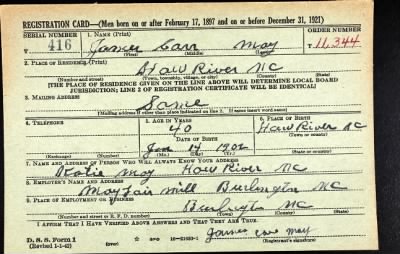 REGISTRATION CARD—(Men born on or after February 17, 1897 and on or before December 31, 1921)
SERIAL NUMBER 1. NAME (Print) ORDER NUMBER
T 416 James Carr May T 11,344
(First) (Middle) (Last)
2. PLACE OF RESIDENCE (Print)
Haw River NC
(Number and street) (Town, township, village, or city) (County) (State)
[THE PLACE OF RESIDENCE GIVEN ON THE LINE ABOVE WILL DETERMINE LOCAL BOARD
JURISDICTION; LINE 2 OF REGISTRATION CERTIFICATE WILL BE IDENTICAL]
3. MAILING ADDRESS
Same
[Mailing address if other than place indicated on line 2. If same insert word same]
4. TELEPHONE 5. AGE IN YEARS 6. PLACE OF BIRTH
40 Haw River
DATE OF BIRTH (Town or county)
Jan 14 1902 NC
(Exchange) (Number) (Mo.) (Day) (Yr.) (State or country)
7. NAME AND ADDRESS OF PERSON WHO WILL ALWAYS KNOW YOUR ADDRESS
Katie May Haw River NC
8. EMPLOYER'S NAME AND ADDRESS
May Fair Mill Burlington NC
9. PLACE OF EMPLOYMENT OR BUSINESS
Burlington NC
(Number and street or R. F. D. number) (Town) (County) (State)
I AFFIRM THAT I HAVE VERIFIED ABOVE ANSWERS AND THAT THEY ARE TRUE.
D. S. S. Form 1 James Carr May
(Revised 1-1-42) (over) (Registrant's signature)